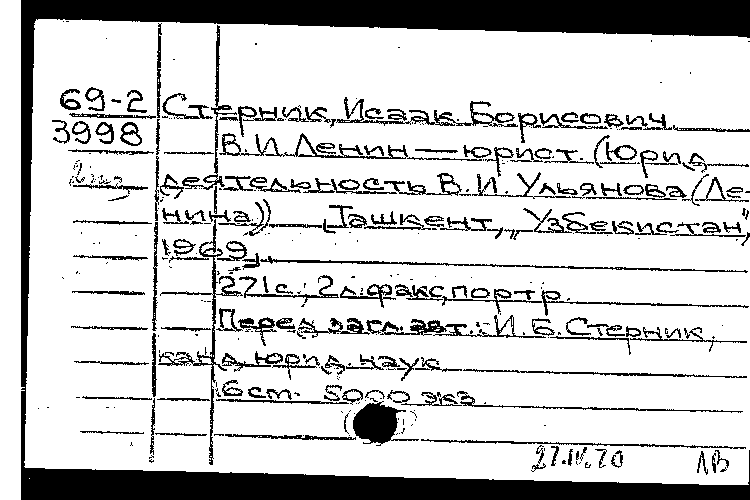 69-2 Стерник, Исаак Борисович.
3998 В.И. Ленин — юрист. (Юрид.
2 экз деятельность В.И. Ульянова (Ле-
нина)) [Ташкент, „Узбекистан",
1969].
271 с.; 2 л. факс, портр.
Перед загл. авт.: И.Б. Стерник,
канд. юрид. наук
5000 экз.
27.IV.70 ЛВ